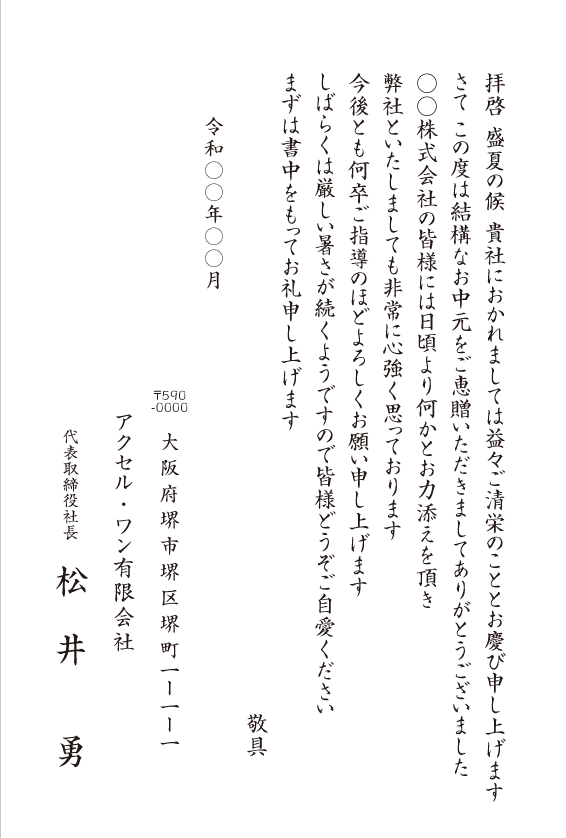 拝啓 盛夏の候 貴社におかれましては益々ご清栄のこととお慶び申し上げます
さて この度は結構なお中元をご恵贈いただきましてありがとうございました
〇〇株式会社の皆様には日頃より何かとお力添えを頂き
弊社といたしましても非常に心強く思っております
今後とも何卒ご指導のほどよろしくお願い申し上げます
しばらくは厳しい暑さが続くようですので皆様どうぞご自愛ください
まずは書中をもってお礼申し上げます
敬具
令和〇〇年〇〇月
〒590
-0000
大阪府堺市堺区堺町一ー一ー一
アクセル・ワン有限会社
代表取締役社長 松井 勇